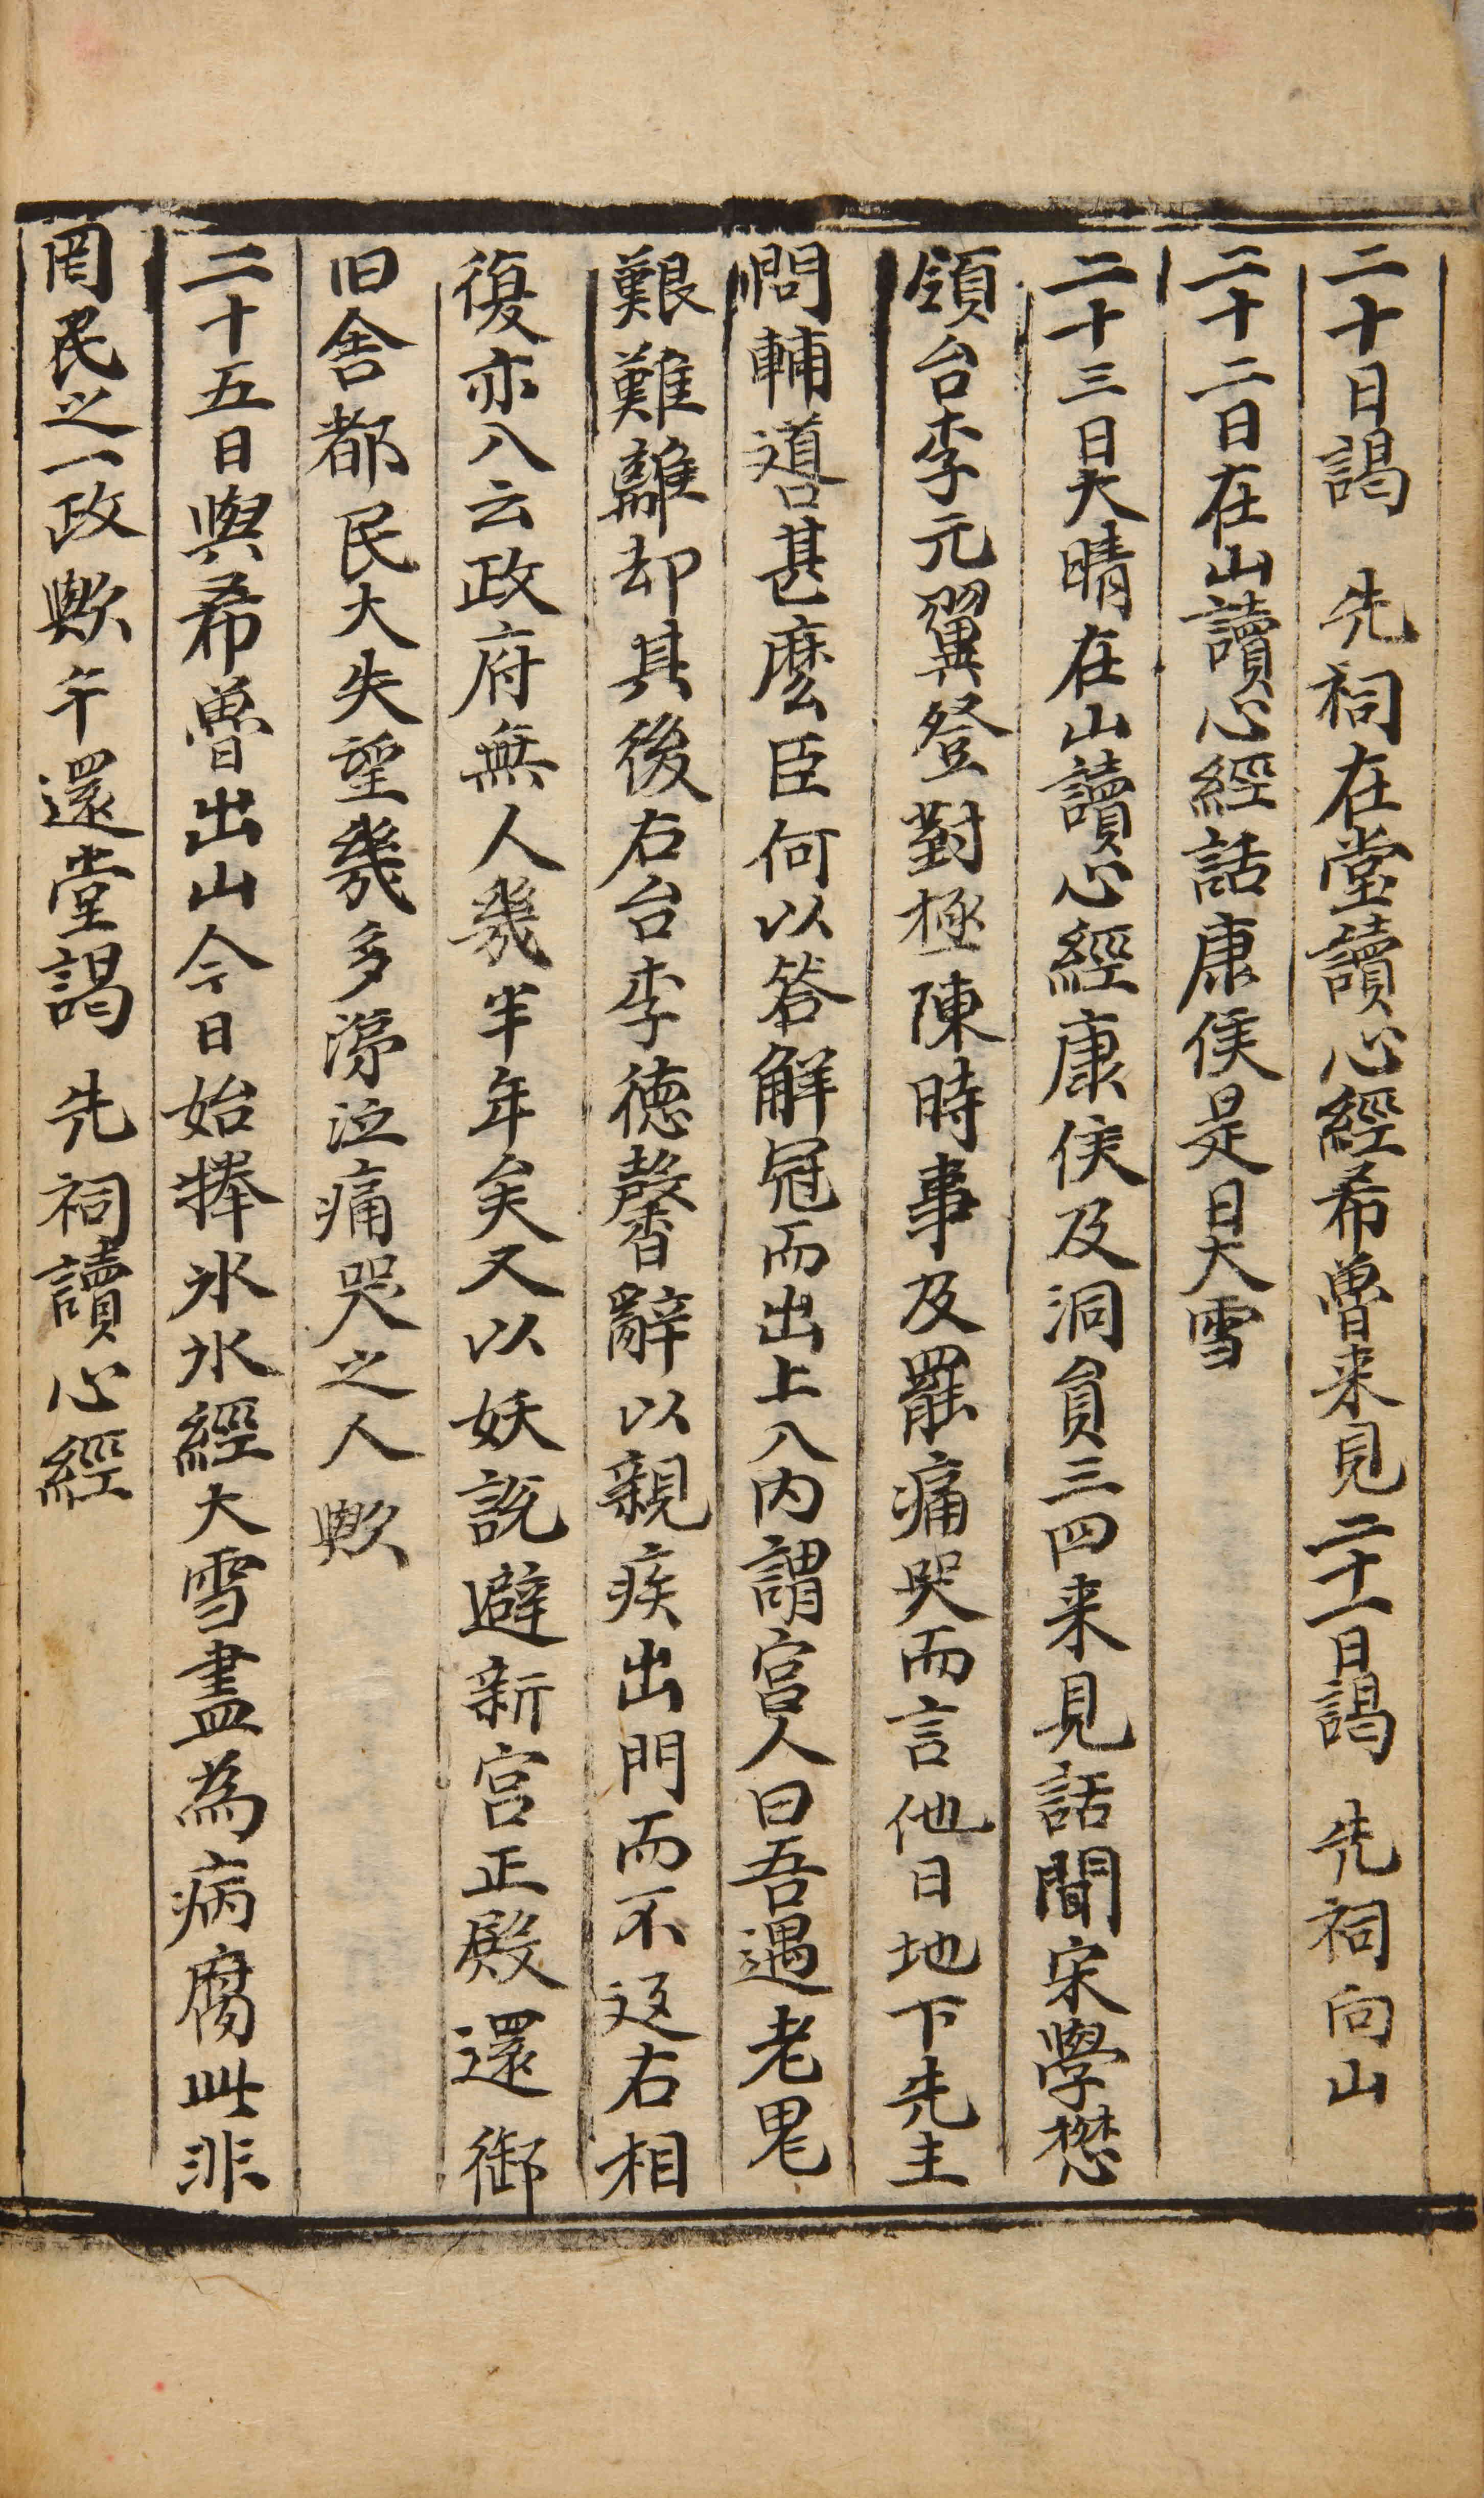 二十日謁　先祠在堂讀心經希曾来見二十一日謁　先祠向山
二十二日在山讀心經話康侯是日大雪
二十三日大晴在山讀心經康侯及洞員三四来見話聞宋學懋
領台李元翼登對極陳時事及罷痛哭而言他日地下先主
問輔噵甚麽臣何以答解冠而出上入内謂宮人曰吾遇老鬼
艱難離却其後右台李德馨辭以親疾出門而不返右相
復亦入云政府無人幾半年矣又以妖説避新宮正殿還御
旧舎都民大失望幾多涕泣痛哭之人歟
二十五日與希曾出山今日始捧氷氷經大雪盡為病腐此非
罔民之一政歟午還堂謁　先祠讀心經